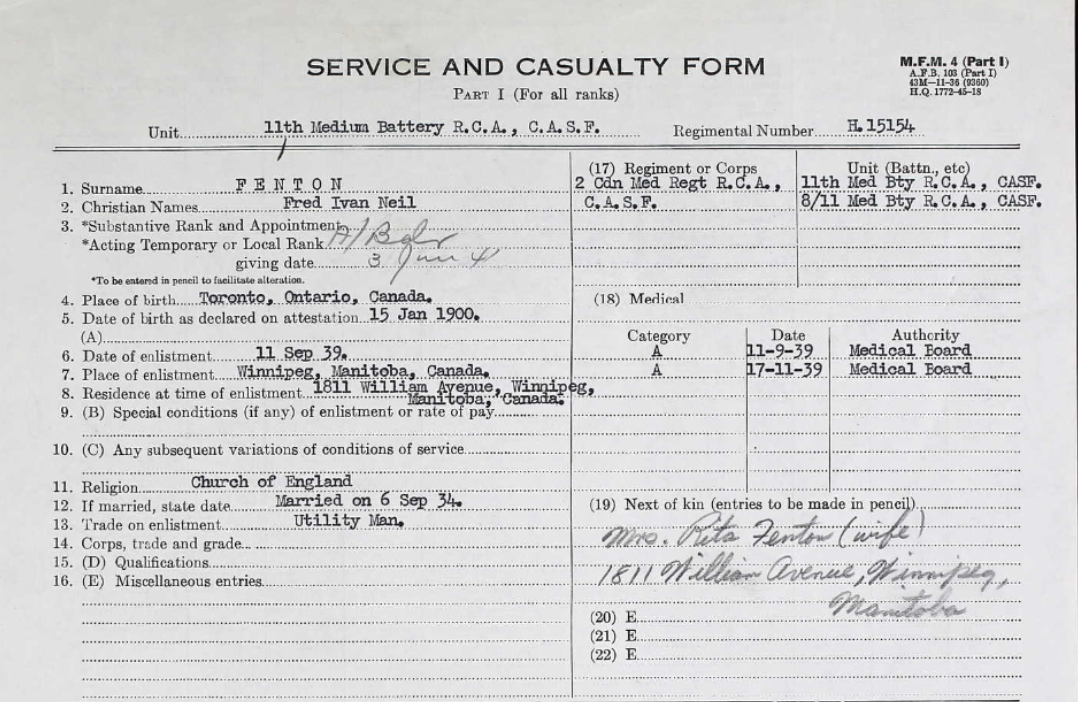 SERVICE AND CASUALTY FORM
M.F.M. 4 (Part I)
A.F.B. 103 (Part I)
43M—11-36 (9360)
H.Q. 1772-45-18
PART I (For all ranks)
Unit 11th Medium Battery R.C.A., C.A.S.F. Regimental Number H.15154
1. Surname FENTON
2. Christian Names Fred Ivan Neil
3. *Substantive Rank and Appointment
*Acting Temporary or Local Rank A/Bdr
giving date 3 Jun 4
*To be entered in pencil to facilitate alteration.
4. Place of birth Toronto, Ontario, Canada.
5. Date of birth as declared on attestation 15 Jan 1900.
(A)
6. Date of enlistment 11 Sep 39.
7. Place of enlistment Winnipeg, Manitoba, Canada.
8. Residence at time of enlistment 1811 William Avenue, Winnipeg,
Manitoba, Canada.
9. (B) Special conditions (if any) of enlistment or rate of pay
10. (C) Any subsequent variations of conditions of service
11. Religion Church of England
12. If married, state date Married on 6 Sep 34.
13. Trade on enlistment Utility Man.
14. Corps, trade and grade
15. (D) Qualifications
16. (E) Miscellaneous entries
(17) Regiment or Corps Unit (Battn., etc)
2 Cdn Med Regt R.C.A., 11th Med Bty R.C.A., CASF.
C.A.S.F. 8/11 Med Bty R.C.A., CASF.
(18) Medical
Category Date Authority
A 11-9-39 Medical Board
A 17-11-39 Medical Board
(19) Next of kin (entries to be made in pencil)
Mrs. Rita Fenton (wife)
1811 William Avenue, Winnipeg,
Manitoba
(20) E
(21) E
(22) E